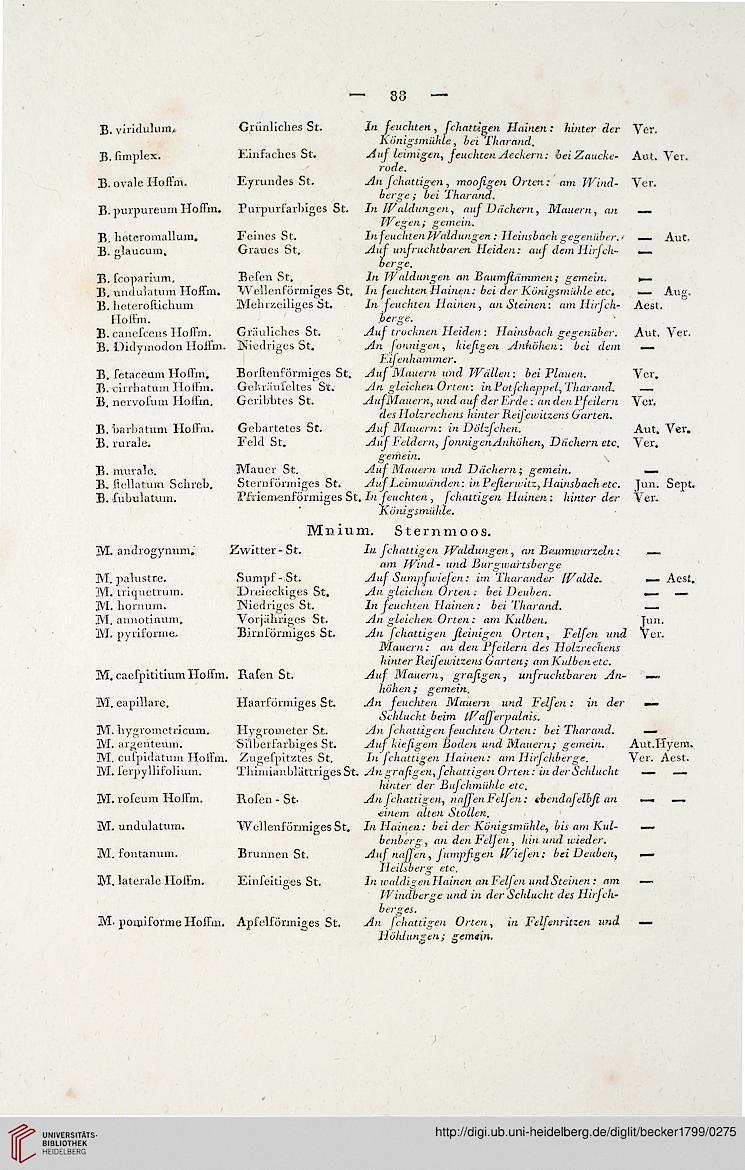 — 88 —
B. viridulum. Grünliches St. In feuchten, ſchattigen Hainen: hinter der Ver.
Königsmühle, bei Tharand.
B. ſimplex. Einfaches St. Auf leimigen, feuchten Aeckern: bei Zaucke- Aut. Ver.
rode.
B. ovale Hoffm. Eyrundes St. An ſchattigen, mooſigen Orten: am Wind- Ver.
berge; bei Tharand.
B. purpureum Hoffm. Purpurfarbiges St. In Waldungen, auf Dächern, Mauern, an —
Wegen; gemein.
B. heteromallum. Feines St. In feuchten Waldungen: Heinsbach gegenüber. — Aut.
B. glaucum. Graues St. Auf unfruchtbaren Heiden: auf dem Hirſch- —
berge.
B. ſcoparium. Beſen St. In Waldungen an Baumſtämmen; gemein. —
B. undulatum Hoffm. Wellenförmiges St. In feuchten Hainen: bei der Königsmühle etc. — Aug.
B. heteroſtichum Mehrzeiliges St. In feuchten Hainen, an Steinen: am Hirſch- Aest.
Hoffm. berge.
B. caneſcens Hoffm. Gräuliches St. Auf trocknen Heiden: Hainsbach gegenüber. Aut. Ver.
B. Didymodon Hoffm. Niedriges St. An ſonnigen, kieſigen Anhöhen: bei dem —
Eiſenhammer.
B. ſetaceum Hoffm. Borſtenförmiges St. Auf Mauern und Wällen: bei Plauen. Ver.
B. cirrhatum Hoffm. Gekräuſeltes St. An gleichen Orten: in Potſchappel, Tharand. —
B. nervoſum Hoffm. Geribbtes St. Auf Mauern, und auf der Erde: an den Pfeilern Ver.
des Holzrechens hinter Reiſewitzens Garten.
B. barbatum Hoffm. Gebartetes St. Auf Mauern: in Dölzſchen. Aut. Ver.
B. rurale. Feld St. Auf Feldern, ſonnigen Anhöhen, Dächern etc. Ver.
gemein.
B. murale. Mauer St. Auf Mauern und Dächern; gemein. —
B. ſtellatum Schreb. Sternförmiges St. Auf Leimwänden: in Peſterwitz, Hainsbach etc. Jun. Sept.
B. ſubulatum. Pfriemenförmiges St. In feuchten, ſchattigen Hainen: hinter der Ver.
Königsmühle.
Mnium. Sternmoos.
M. androgynum. Zwitter-St. In ſchattigen Waldungen, an Baumwurzeln: —
am Wind- und Burgwartsberge
M. palustre. Sumpf-St. Auf Sumpfwieſen: im Tharander Walde. — Aest.
M. triquetrum. Dreieckiges St. An gleichen Orten: bei Deuben. — —
M. hornum. Niedriges St. In feuchten Hainen: bei Tharand. —
M. annotinum. Vorjähriges St. An gleichen Orten: am Kulben. Jun.
M. pyriforme. Birnförmiges St. An ſchattigen ſteinigen Orten, Felſen und Ver.
Mauern: an den Pfeilern des Holzrechens
hinter Reiſewitzens Garten; am Kulben etc.
M. caeſpititium Hoffm. Raſen St. Auf Mauern, graſigen, unfruchtbaren An- —
höhen; gemein.
M. capillare. Haarförmiges St. An feuchten Mauern und Felſen: in der —
Schlucht beim Waſſerpalais.
M. hygrometricum. Hygrometer St. An ſchattigen feuchten Orten: bei Tharand. —
M. argenteum. Silberfarbiges St. Auf kieſigem Boden und Mauern; gemein. Aut. Hyem.
M. cuſpidatum Hoffm. Zugeſpitztes St. In ſchattigen Hainen: am Hirſchberge. Ver. Aest.
M. ſerpyllifolium. Thimianblättriges St. An graſigen, ſchattigen Orten: in der Schlucht — —
hinter der Buſchmühle etc.
M. roſeum Hoffm. Roſen-St. An ſchattigen, naſſen Felſen: ebendaſelbſt an — —
einem alten Stollen.
M. undulatum. Wellenförmiges St. In Hainen: bei der Königsmühle, bis am Kul- —
benberg, an den Felſen, hin und wieder.
M. fontanum. Brunnen St. Auf naſſen, ſumpfigen Wieſen: bei Deuben, —
Heilsberg etc.
M. laterale Hoffm. Einſeitiges St. In waldigen Hainen an Felſen und Steinen: am —
Windberge und in der Schlucht des Hirſch-
berges.
M. pomiforme Hoffm. Apfelförmiges St. An ſchattigen Orten, in Felſenritzen und —
Höhlungen; gemein.
UNIVERSITÄTS-
BIBLIOTHEK
HEIDELBERG
http://digi.ub.uni-heidelberg.de/diglit/becker1799/0275